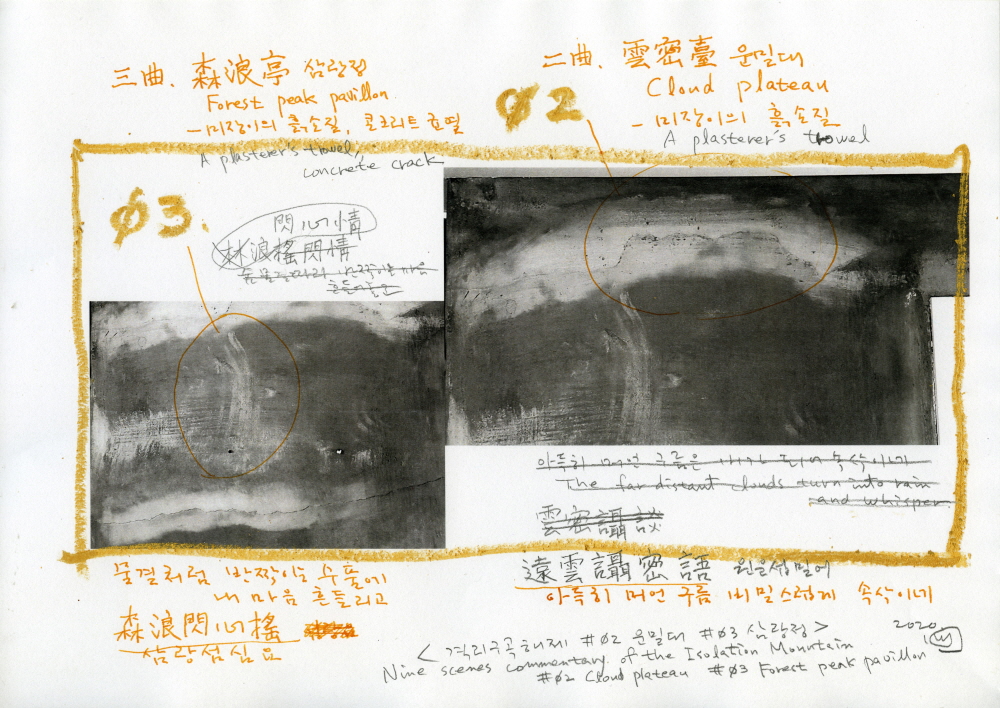 三曲. 森浪亭 삼랑정
Forest peak pavillon
– 미장이의 흙손질, 콘크리트 균열
A plasterer's trowel,
concrete crack
二曲. 雲密臺 운밀대
Cloud plateau
– 미장이의 흙손질
A plasterer's trowel
Ø2
Ø3
閃心情
森浪搖閃情
아득히 머언 구름은 비가 되어 속삭이네
The far distant clouds turn into rain
and whisper
雲密讘談
遠雲讘密語 원운섭밀어
아득히 머언 구름 비밀스럽게 속삭이네
물결처럼 반짝이는 수풀에
내 마음 흔들리고
森浪閃心搖
삼랑섬심요
2020
< 격리구곡해제 #02 운밀대 #03 삼랑정 >
Nine scenes commentary of the Isolation Mountain
#02 Cloud plateau #03 Forest peak pavillon